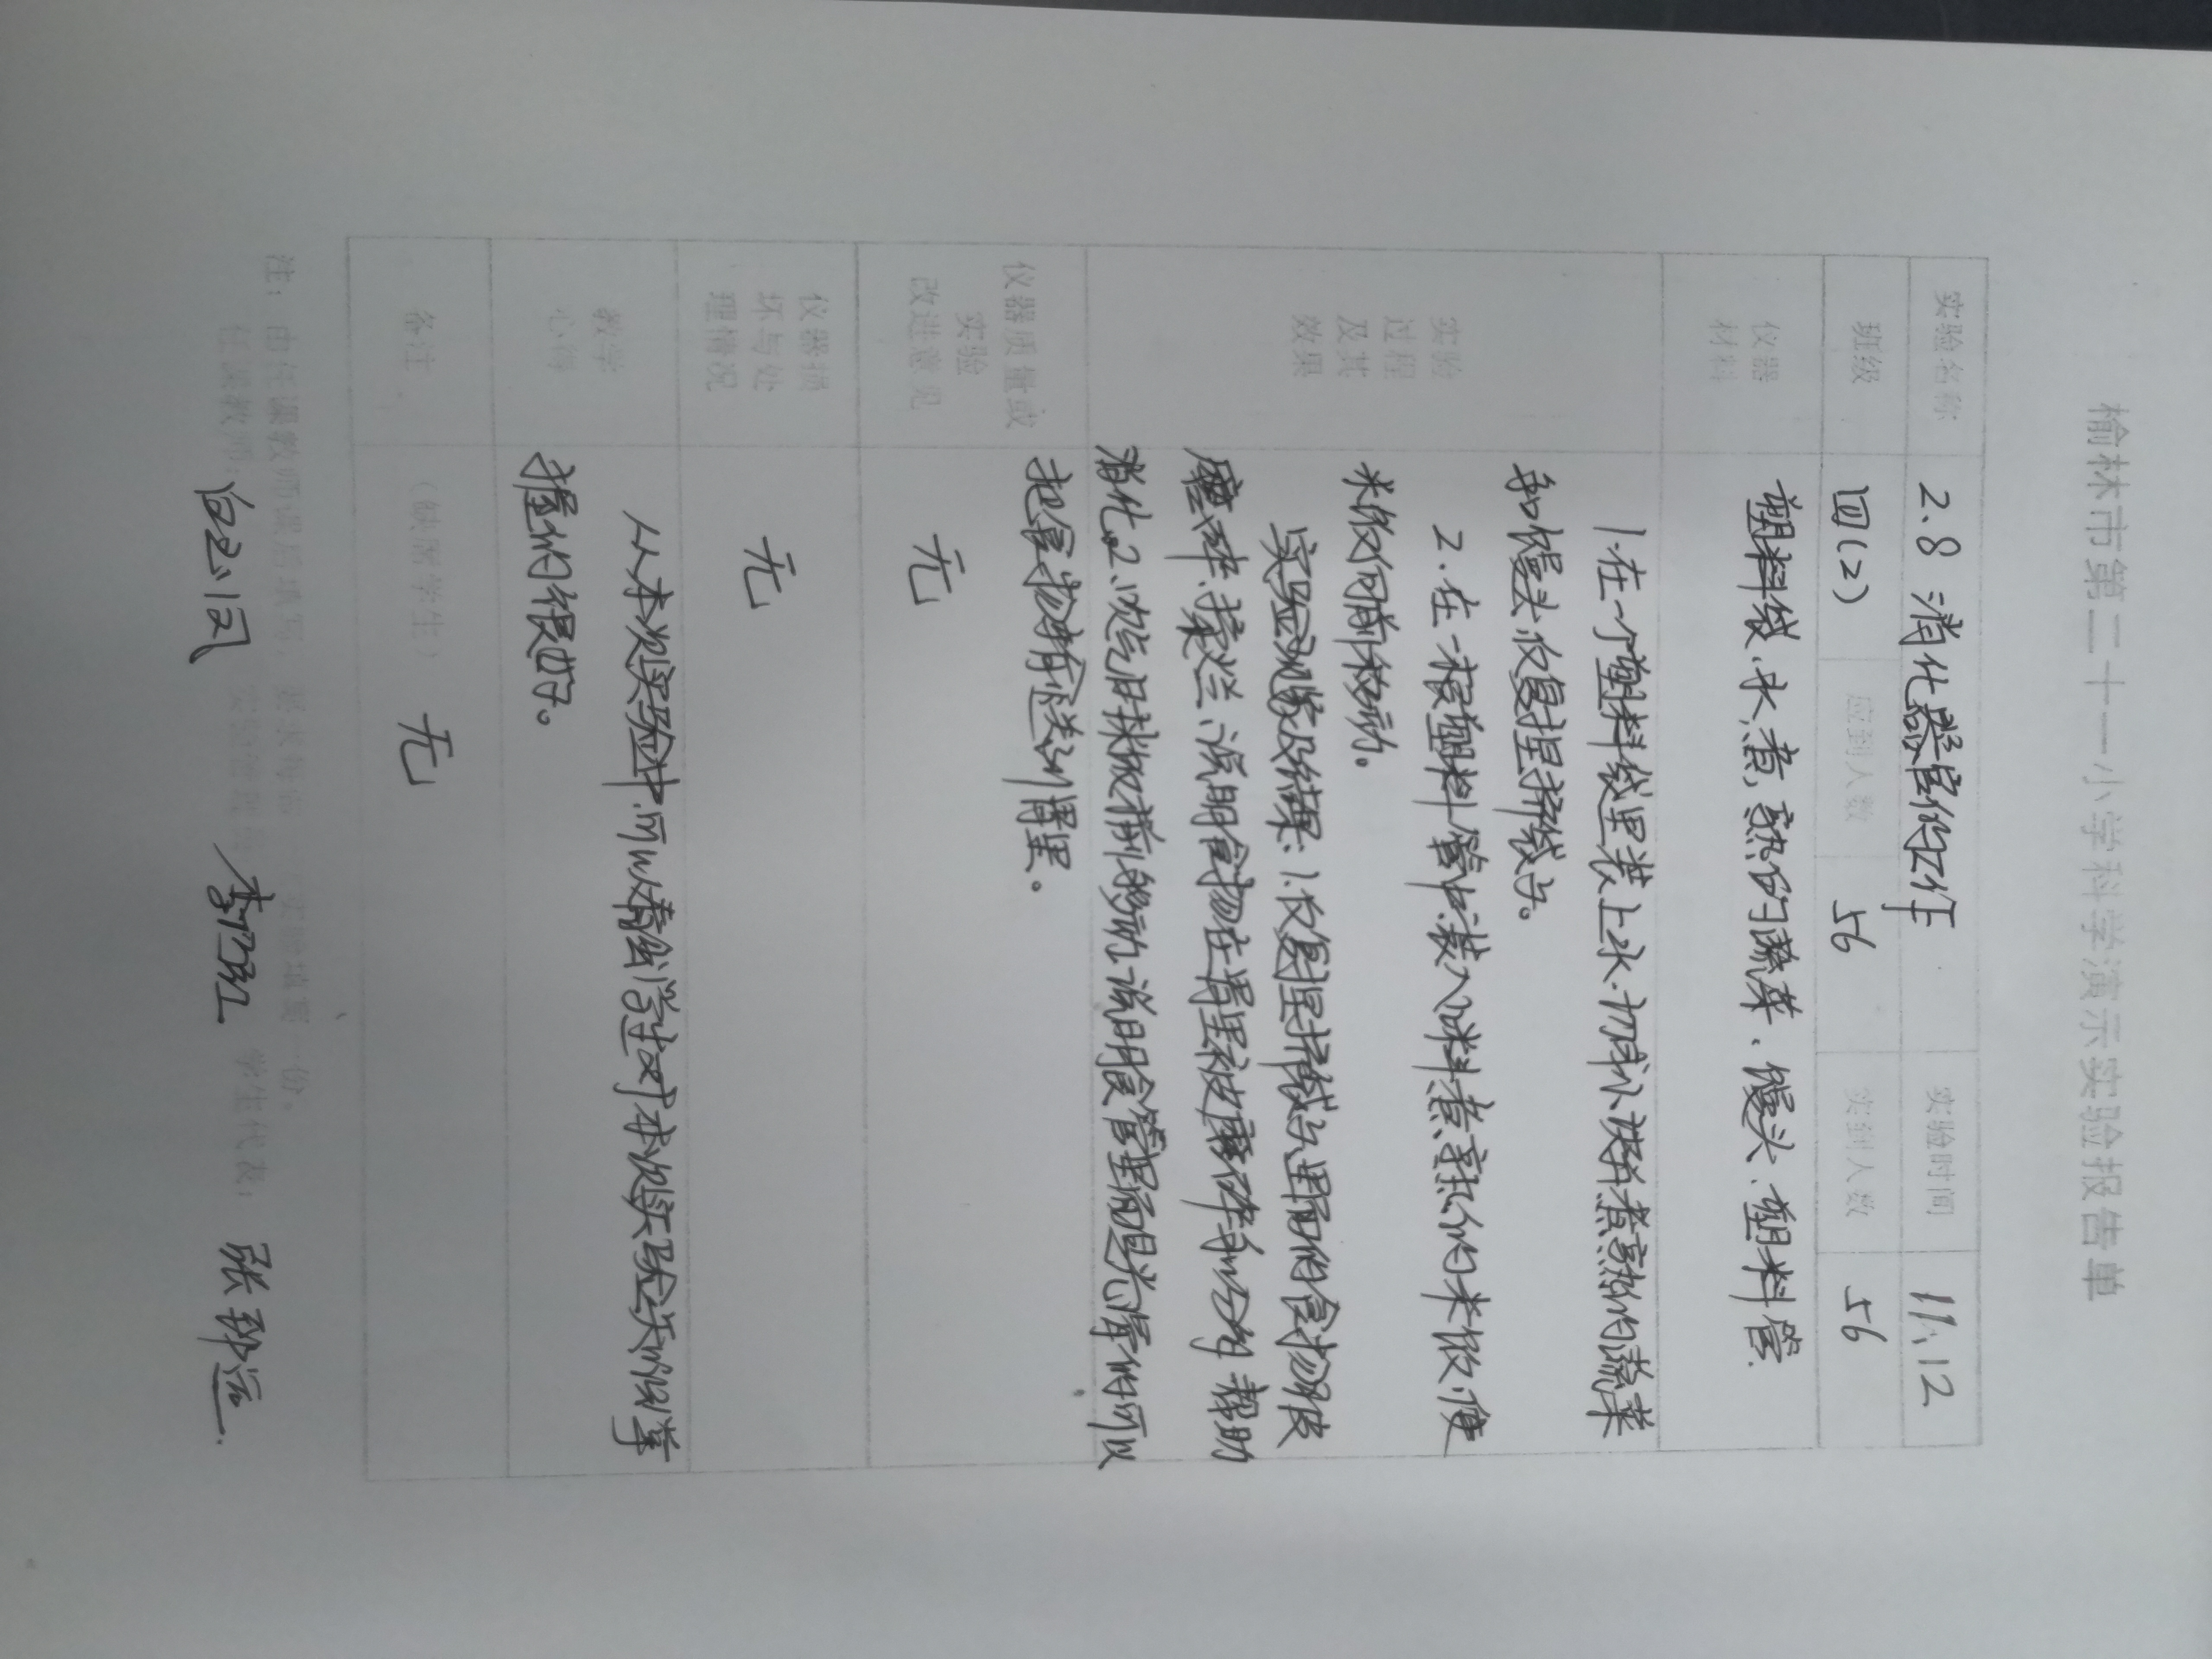 榆林市第二十一小学科学演示实验报告单
实验名称 2.8 消化器官的工作 实验时间 11.12
班级 四(2) 应到人数 56 实到人数 56
仪器材料 塑料袋、水、煮熟的蔬菜、馒头、塑料管.
实验过程及其效果
1.在一个塑料袋里装上水、切成小块并煮熟的蔬菜
和馒头,反复捏挤袋子。
2.在一根塑料管中装入煮熟的米饭,使
米饭向前移动。
实验现象及结果:1.反复捏挤袋子,里面的食物被
磨碎、揉烂,说明食物在胃里被磨碎
消化。2.
把食物输送到胃里。
仪器质量或实验改进意见 无
仪器损坏与处理情况 无
教学心得 从本次实验中,可以看出学生对本次实验知识掌
握的很好。
备注 (缺席学生) 无
注:由任课教师课后填写,要求每做一次实验填写一份。
任课教师: 实验管理员: 李卫红 学生代表: 张